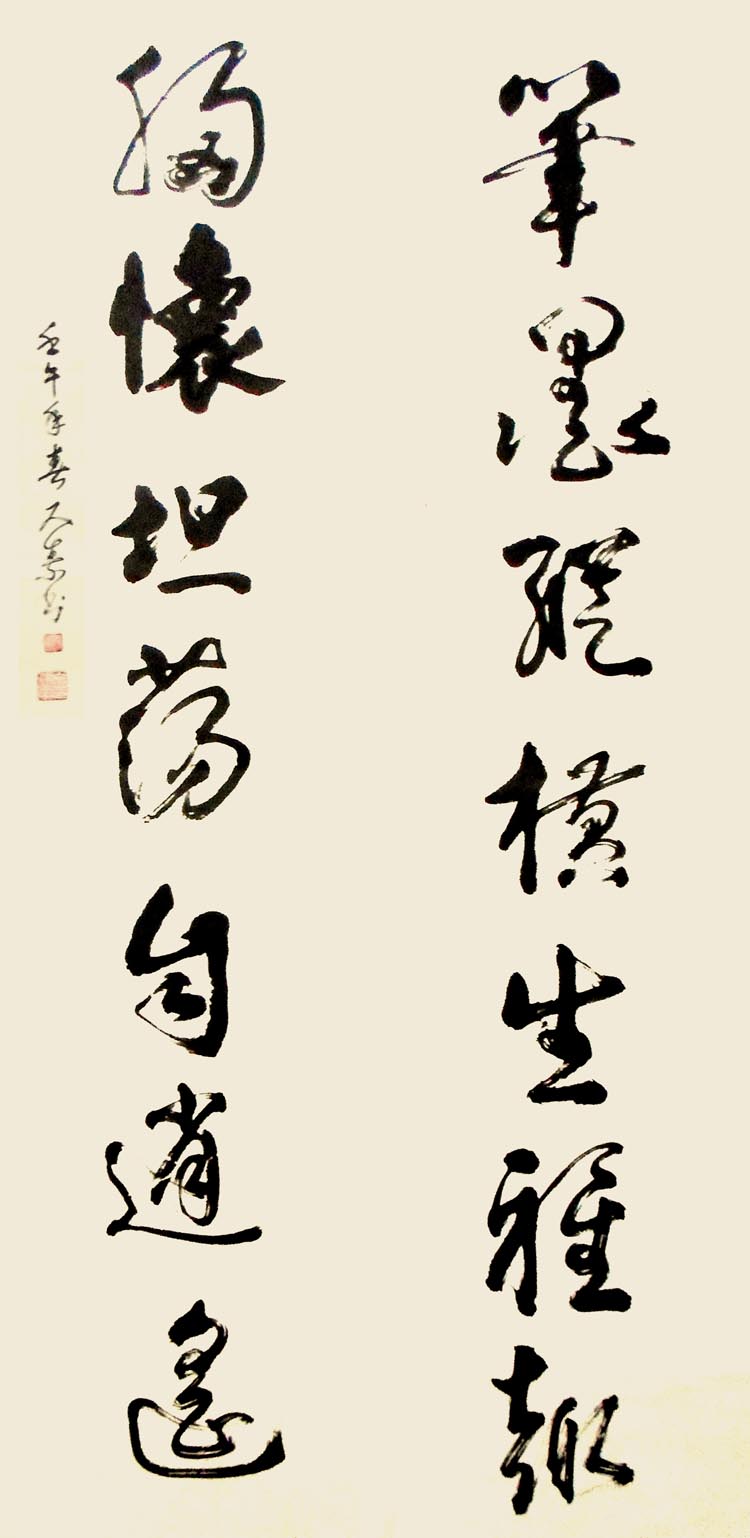 筆墨縱橫生雅趣
胸懷坦蕩自逍遙
壬午年春天素书